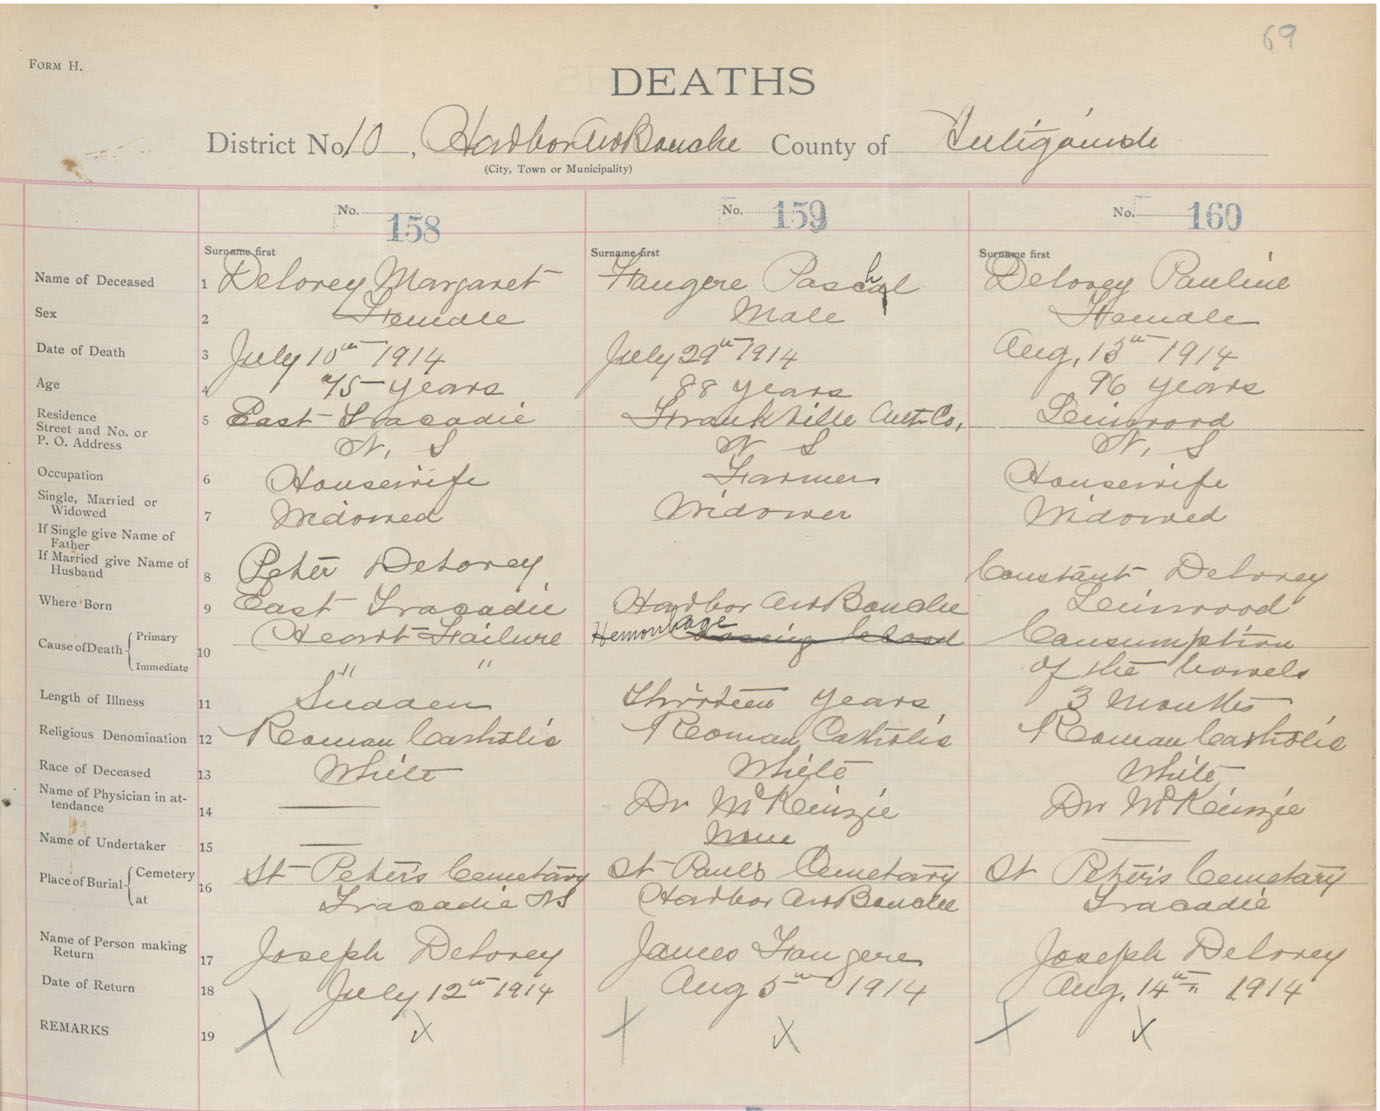 69
FORM H.
DEATHS
District No 10, Harbor Au Bouche County of Antigonish
(City, Town or Municipality)
No. 158 No. 159 No. 160
Surname first Surname first Surname first
Name of Deceased 1 Delorey Margaret Faugere Paschal Delorey Pauline
Sex 2 Female Male Female
Date of Death 3 July 10th 1914 July 29th 1914 Aug, 13th 1914
Age 4 75 years 88 years 96 years
Residence Street and No. or P. O. Address 5 East Tracadie Frankville Ant. Co, Linwood
N. S N S N. S
Occupation 6 Housewife Farmer Housewife
Single, Married or Widowed 7 Widowed Widower Widowed
If Single give Name of Father
If Married give Name of Husband 8 Peter Delorey Constant Delorey
Where Born 9 East Tracadie Harbor Au Bouche Linwood
Cause of Death { Primary 10 Heart Failure Hemorrhage Loosing blood Consumption
Immediate " " of the bowels
Length of Illness 11 Sudden Thirteen years 3 Months
Religious Denomination 12 Roman Catholic Roman Catholic Roman Catholic
Race of Deceased 13 White White White
Name of Physician in attendance 14 —— Dr McKenzie Dr McKenzie
Name of Undertaker 15 —— None ——
Place of Burial { Cemetery 16 St Peter's Cemetary St Paul's Cemetary St Peter's Cemetary
at Tracadie NS Harbor Au Bouche Tracadie
Name of Person making Return 17 Joseph Delorey James Faugere Joseph Delorey
Date of Return 18 July 12th 1914 Aug 5th 1914 Aug, 14th 1914
REMARKS 19 X X X X X X